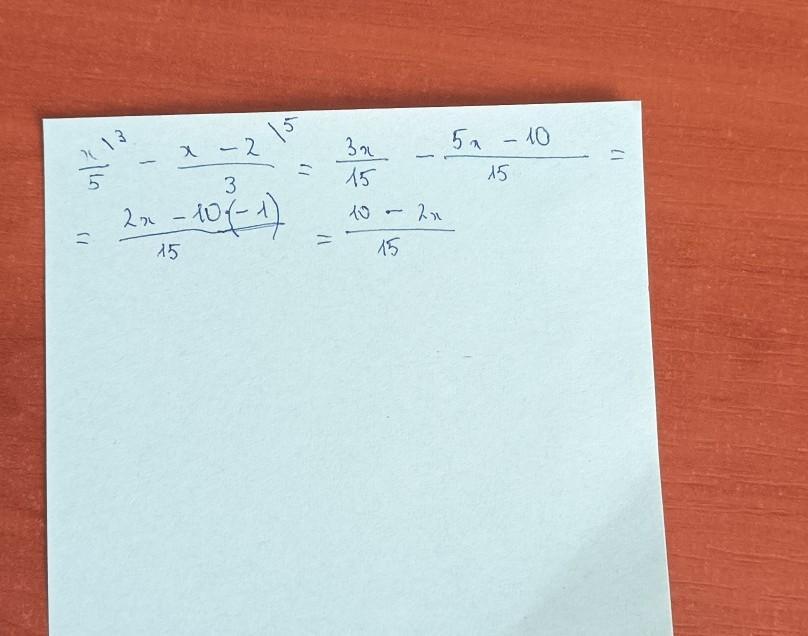 x\3/5 - x - 2\5/3 = 3x/15 - 5x - 10/15 =
= 2x - 10·(-1)/15 = 10 - 2x/15